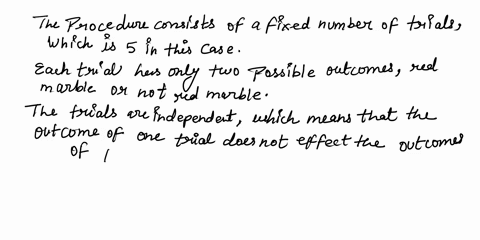 The Procedure consists of a fixed number of trials,
which is 5 in this case.
Each trial has only two possible outcomes, red
marble or not red marble.
The trials are independent, which means that the
outcome of one trial does not effect the outcomes
of